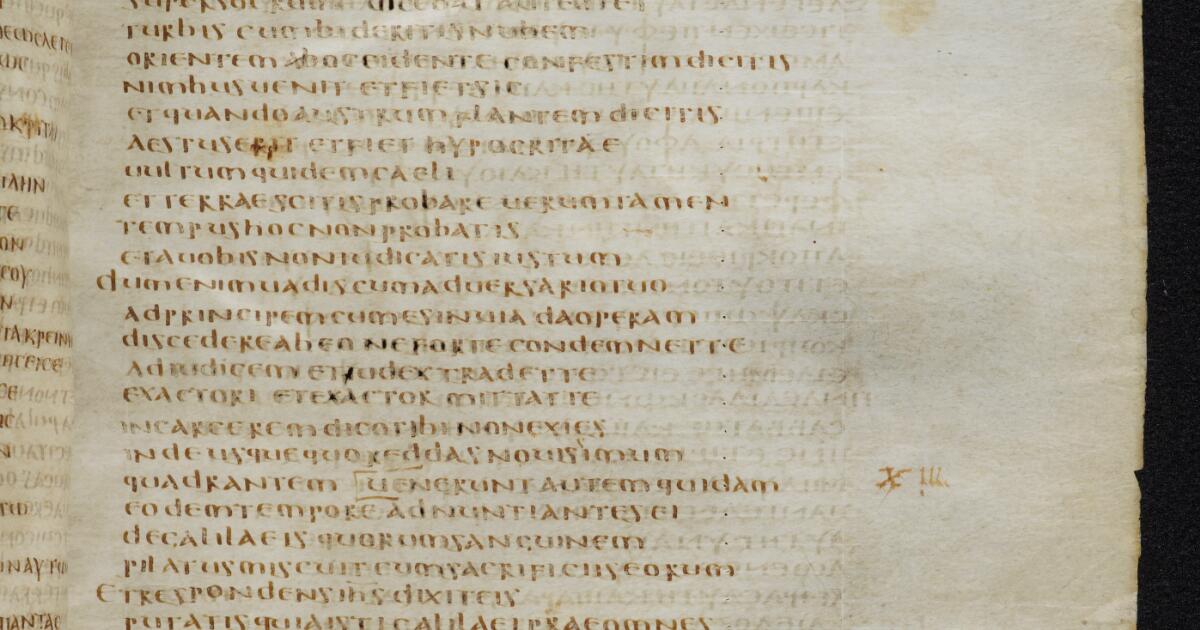 super socrum dicebat autem et
turbis cum bideritis nubem
orientem ab occidente confestim dicitis
nimbus uenit et fiet sic
et quando austrum flantem dicitis
aestus erit et fiet hypocritae
uultum quidem caeli
et terrae scitis probare uerumtamen
tempus hoc non probatis
et a uobis non iudicatis iustum
dum enim uadis cum aduersario tuo
ad principem cum es in uia da operam
discedere ab eo ne forte condemnet te
ad iudicem et iudex tradet te
exactori et exactor mittat te
in carcerem dico tibi non exies
inde usque quo reddas nouissimum
quadrantem uenerunt autem quidam
eodem tempore adnuntiantes ei
de galilaeis quorum sanguinem
pilatus miscuit cum sacrificiis eorum
et respondens ihs dixit eis
putatis quia isti galilaei prae omnes